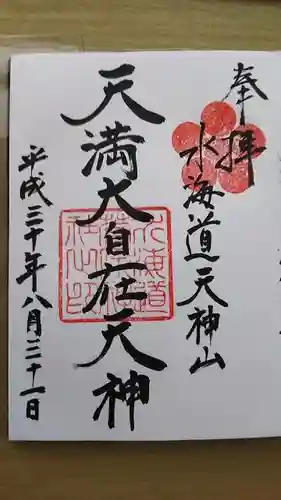 奉拝
水海道天神山
天満大自在天神
平成三十年八月三十一日